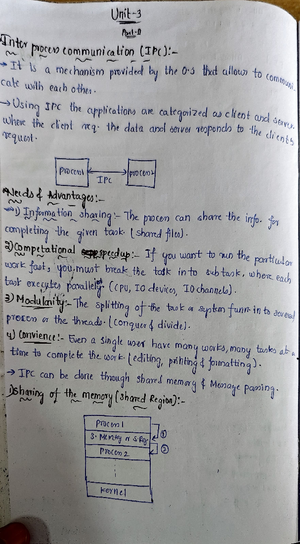 Unit-3
Part-B
Inter process communication (IPC):-
→ It is a mechanism provided by the O.S that allows to communi
cate with each other.
→ Using IPC the applications are categorized as client and server
where the client req. the data and server responds to the client's
request.
process1
IPC
process2
Needs & Advantages:-
1) Information sharing:- The process can share the info. for
completing the given task (shared files).
2) Competational speedup:- If you want to run the particular
work fast, you must break the talk in to subtask, where each
task executes parallely (CPU, IO devices, IO channels).
3) Modularity:- The splitting of the task or system funs. in to several
process or the threads. (conquer & divide).
4) Convience:- Even a single user have many works, many tasks at a
time to complete the work (editing, printing & formatting).
→ IPC can be done through shared memory & Message passing.
1) Sharing of the memory (Shared Region):-
Process 1
S. Memory or S. Reg
①
Process 2
②
Kernel